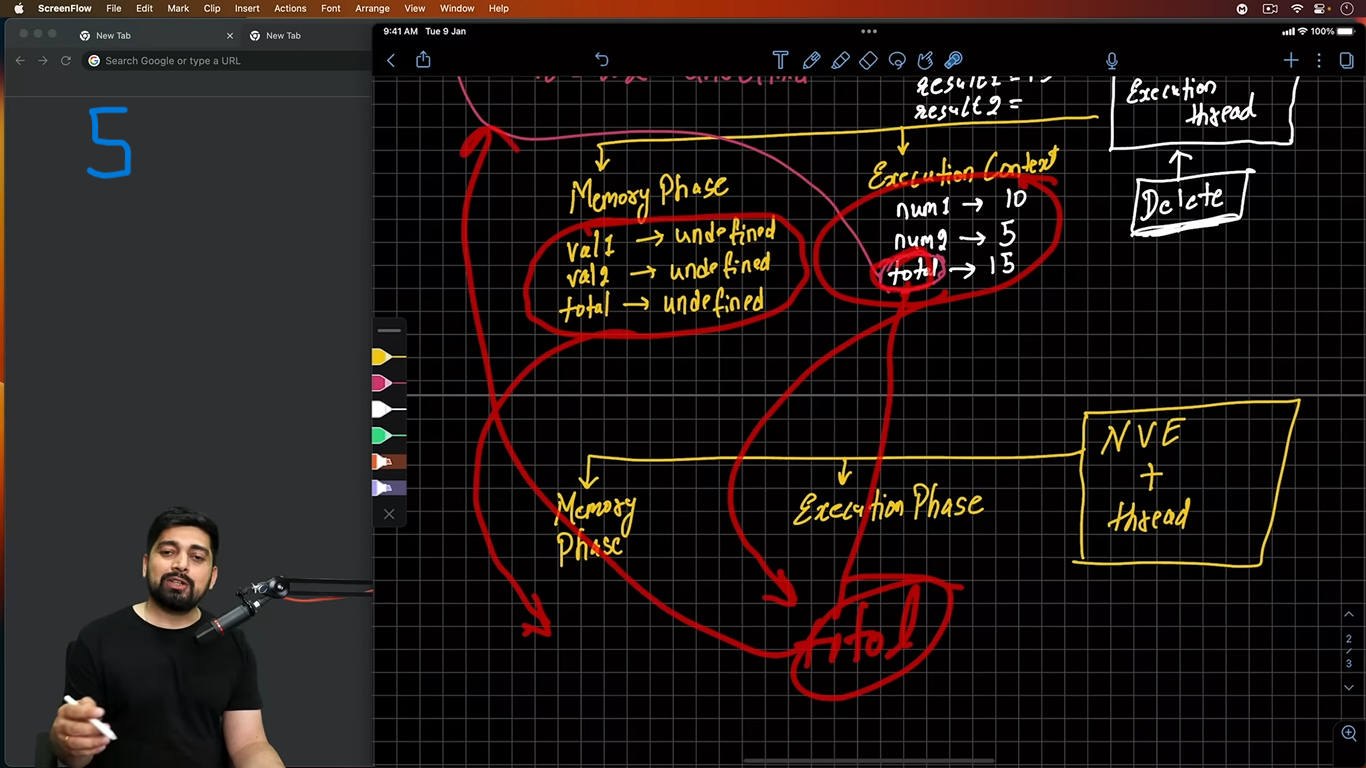 ScreenFlow File Edit Mark Clip Insert Actions Font Arrange View Window Help
New Tab
New Tab
Search Google or type a URL
5
9:41 AM Tue 9 Jan
100%
result2 =
Execution
thread
Delete
Memory Phase
val1 → undefined
val2 → undefined
total → undefined
Execution Context
num1 → 10
num2 → 5
total → 15
NVE
+
thread
Memory
Phase
Execution Phase
total
2
/
3